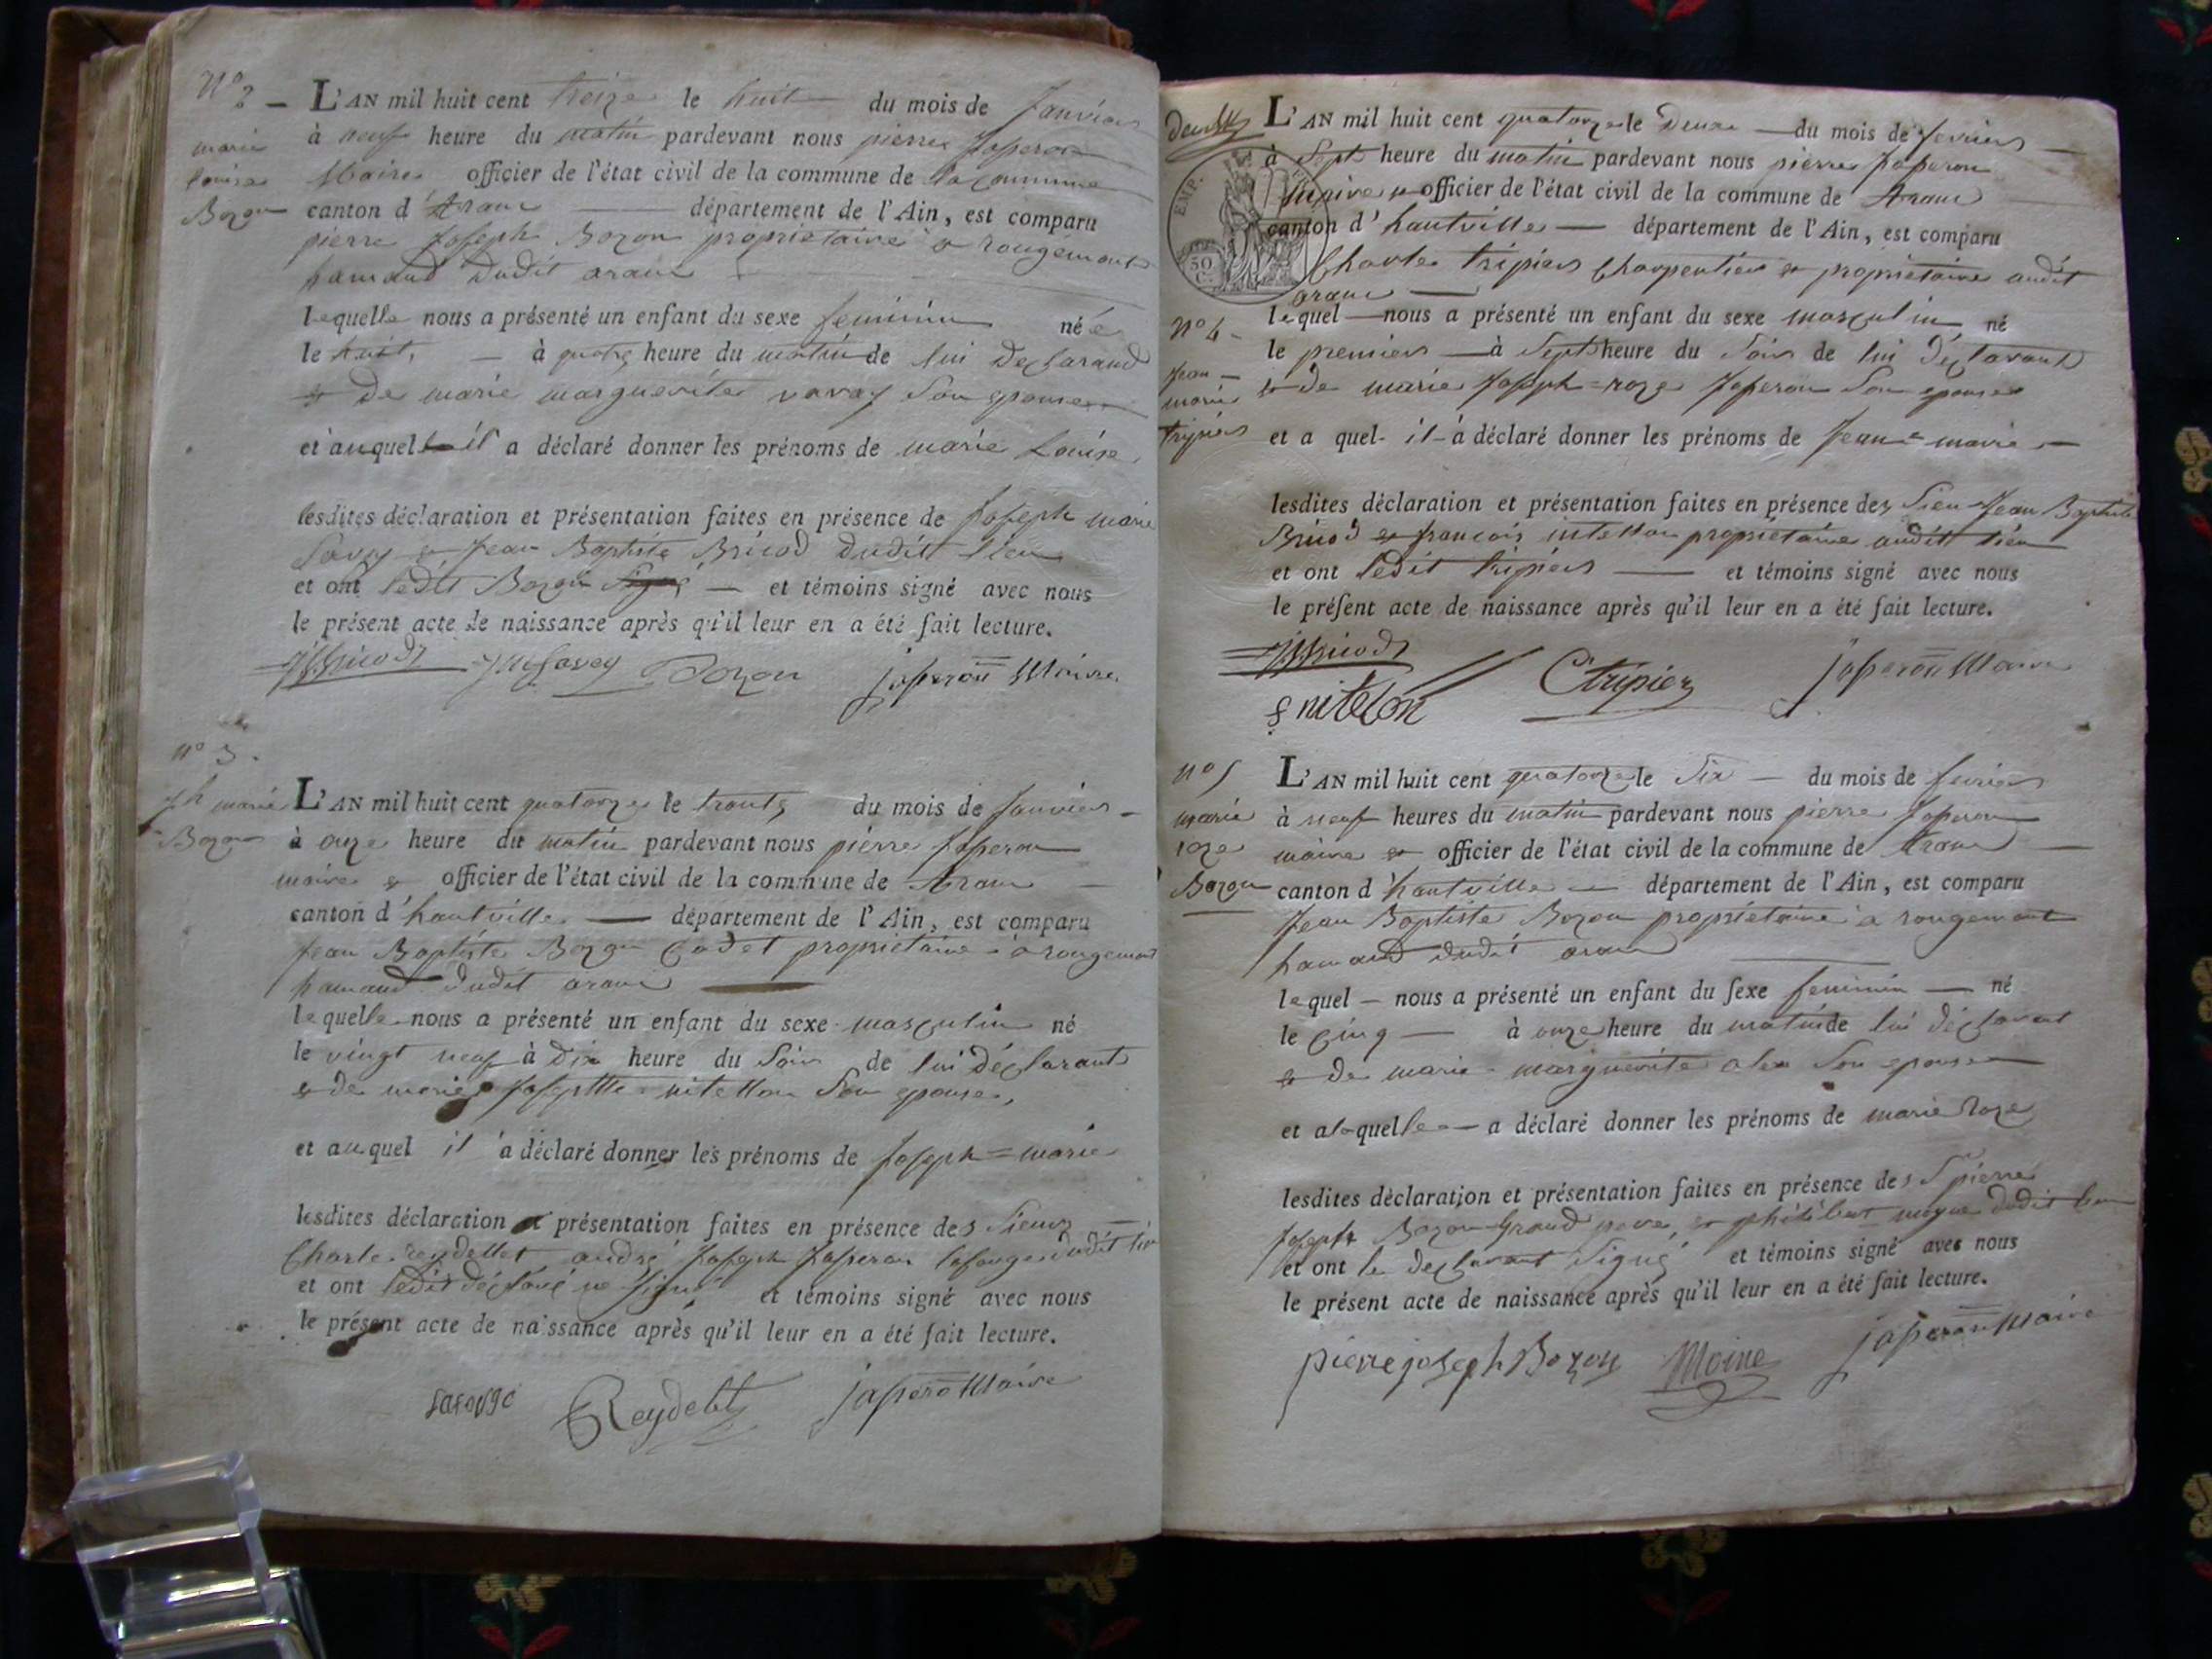 N° 2
marie
louise
Bozon
L'AN mil huit cent treize le huit du mois de Janvier
à neuf heure du matin pardevant nous pierre Jasperon
Maire officier de l'état civil de la commune de la commune
canton d'Aranc département de l'Ain, est comparu
pierre Joseph Bozon proprietaire a rougemont
hamaud dudit aranc
lequelle nous a présenté un enfant du sexe feminin née
le huit, à quatre heure du matin de lui declarand
& de marie marguerite savay Son epouse
et auquel il a déclaré donner les prénoms de marie Louise
lesdites déclaration et présentation faites en présence de Joseph marie
Savey & Jean Baptiste Bricod dudit lieu
et ont ledit Bozon signé et témoins signé avec nous
le présent acte de naissance après qu'il leur en a été fait lecture.
JBBricod JMSavey Bozon jasperon Maire
N° 3.
Jh marie
Bozon
L'AN mil huit cent quatorze le trente du mois de Janvier
à onze heure du matin pardevant nous pierre Jasperon
maire & officier de l'état civil de la commune de Aranc
canton d'hautville département de l'Ain, est comparu
Jean Baptiste Bozon Cadet proprietaire à rougemont
hamaud dudit aranc
lequelle nous a présenté un enfant du sexe masculin né
le vingt neuf à dix heure du Soir de lui déclarant
& de marie Josephtte nitellon Son epouse,
et auquel il a déclaré donner les prénoms de Joseph = marie
lesdites déclaration et présentation faites en présence des Sieurs
Charle reydellet andré Joseph Jasperon lafouge dudit lieu
et ont ledit déclaré ne signé et témoins signé avec nous
le présent acte de naissance après qu'il leur en a été fait lecture.
Lafouge Reydelet jasperon Maire
EMP.
50
C.
L'AN mil huit cent quatorze le Deux du mois de fevrier
à Sept heure du matin pardevant nous pierre Jasperon
maire & officier de l'état civil de la commune de Aranc
canton d'hautville département de l'Ain, est comparu
Charle tripier Charpentier & proprietaire audit
aranc
N° 4
Jean
marie
tripier
lequel nous a présenté un enfant du sexe masculin né
le premier à Sept heure du Soir de lui déclarant
& de marie Joseph = roze Jasperon Son epouse
et a quel il a déclaré donner les prénoms de Jean = marie
lesdites déclaration et présentation faites en présence des Sieu Jean Baptiste
Bricod & francois nitellon proprietaire audit lieu
et ont ledit tripier et témoins signé avec nous
le présent acte de naissance après qu'il leur en a été fait lecture.
JBBricod Ctripier jasperon Maire
f nitelon
N° 5
marie
roze
Bozon
L'AN mil huit cent quatorze le Six du mois de fevrier
à neuf heures du matin pardevant nous pierre Jasperon
maire & officier de l'état civil de la commune de Aranc
canton d'hautville département de l'Ain, est comparu
Jean Baptiste Bozon propriétaire a rougemont
hamaud dudit aranc
lequel nous a présenté un enfant du sexe feminin né
le Cinq à onze heure du matin de lui déclarant
& de marie marguerite alex Son epouse
et alaquelle a déclaré donner les prénoms de marie Roze
lesdites déclaration et présentation faites en présence des S pierre
Joseph Bozon Grand pere, & philibert moyne dudit lieu
et ont le declarant Signé et témoins signé avec nous
le présent acte de naissance après qu'il leur en a été fait lecture.
pierre joseph Bozon Moine jasperon Maire